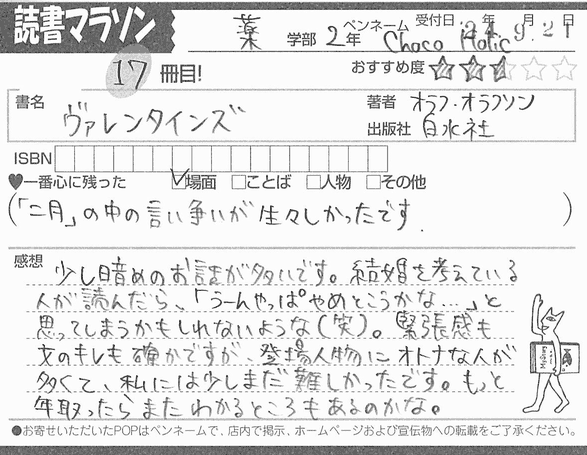 読書マラソン
薬 学部 2年 ペンネーム Choco Holic 受付日 24年 9月21日
17 冊目! おすすめ度 ☆☆☆☆☆
書名 ヴァレンタインズ 著者 オラフ・オラフソン
出版社 白水社
ISBN
♥一番心に残った ☑場面 □ことば □人物 □その他
(「二月」の中の言い争いが生々しかったです.)
感想 少し暗めのお話が多いです。結婚を考えている
人が読んだら、「うーんやっぱやめとこうかな…」と
思ってしまうかもしれないような(笑)。緊張感も
文のキレも確かですが、登場人物にオトナな人が
多くて、私には少しまだ難しかったです。もっと
年取ったらまたわかるところもあるのかな。
●お寄せいただいたPOPはペンネームで、店内で掲示、ホームページおよび宣伝物への転載をご了承ください。